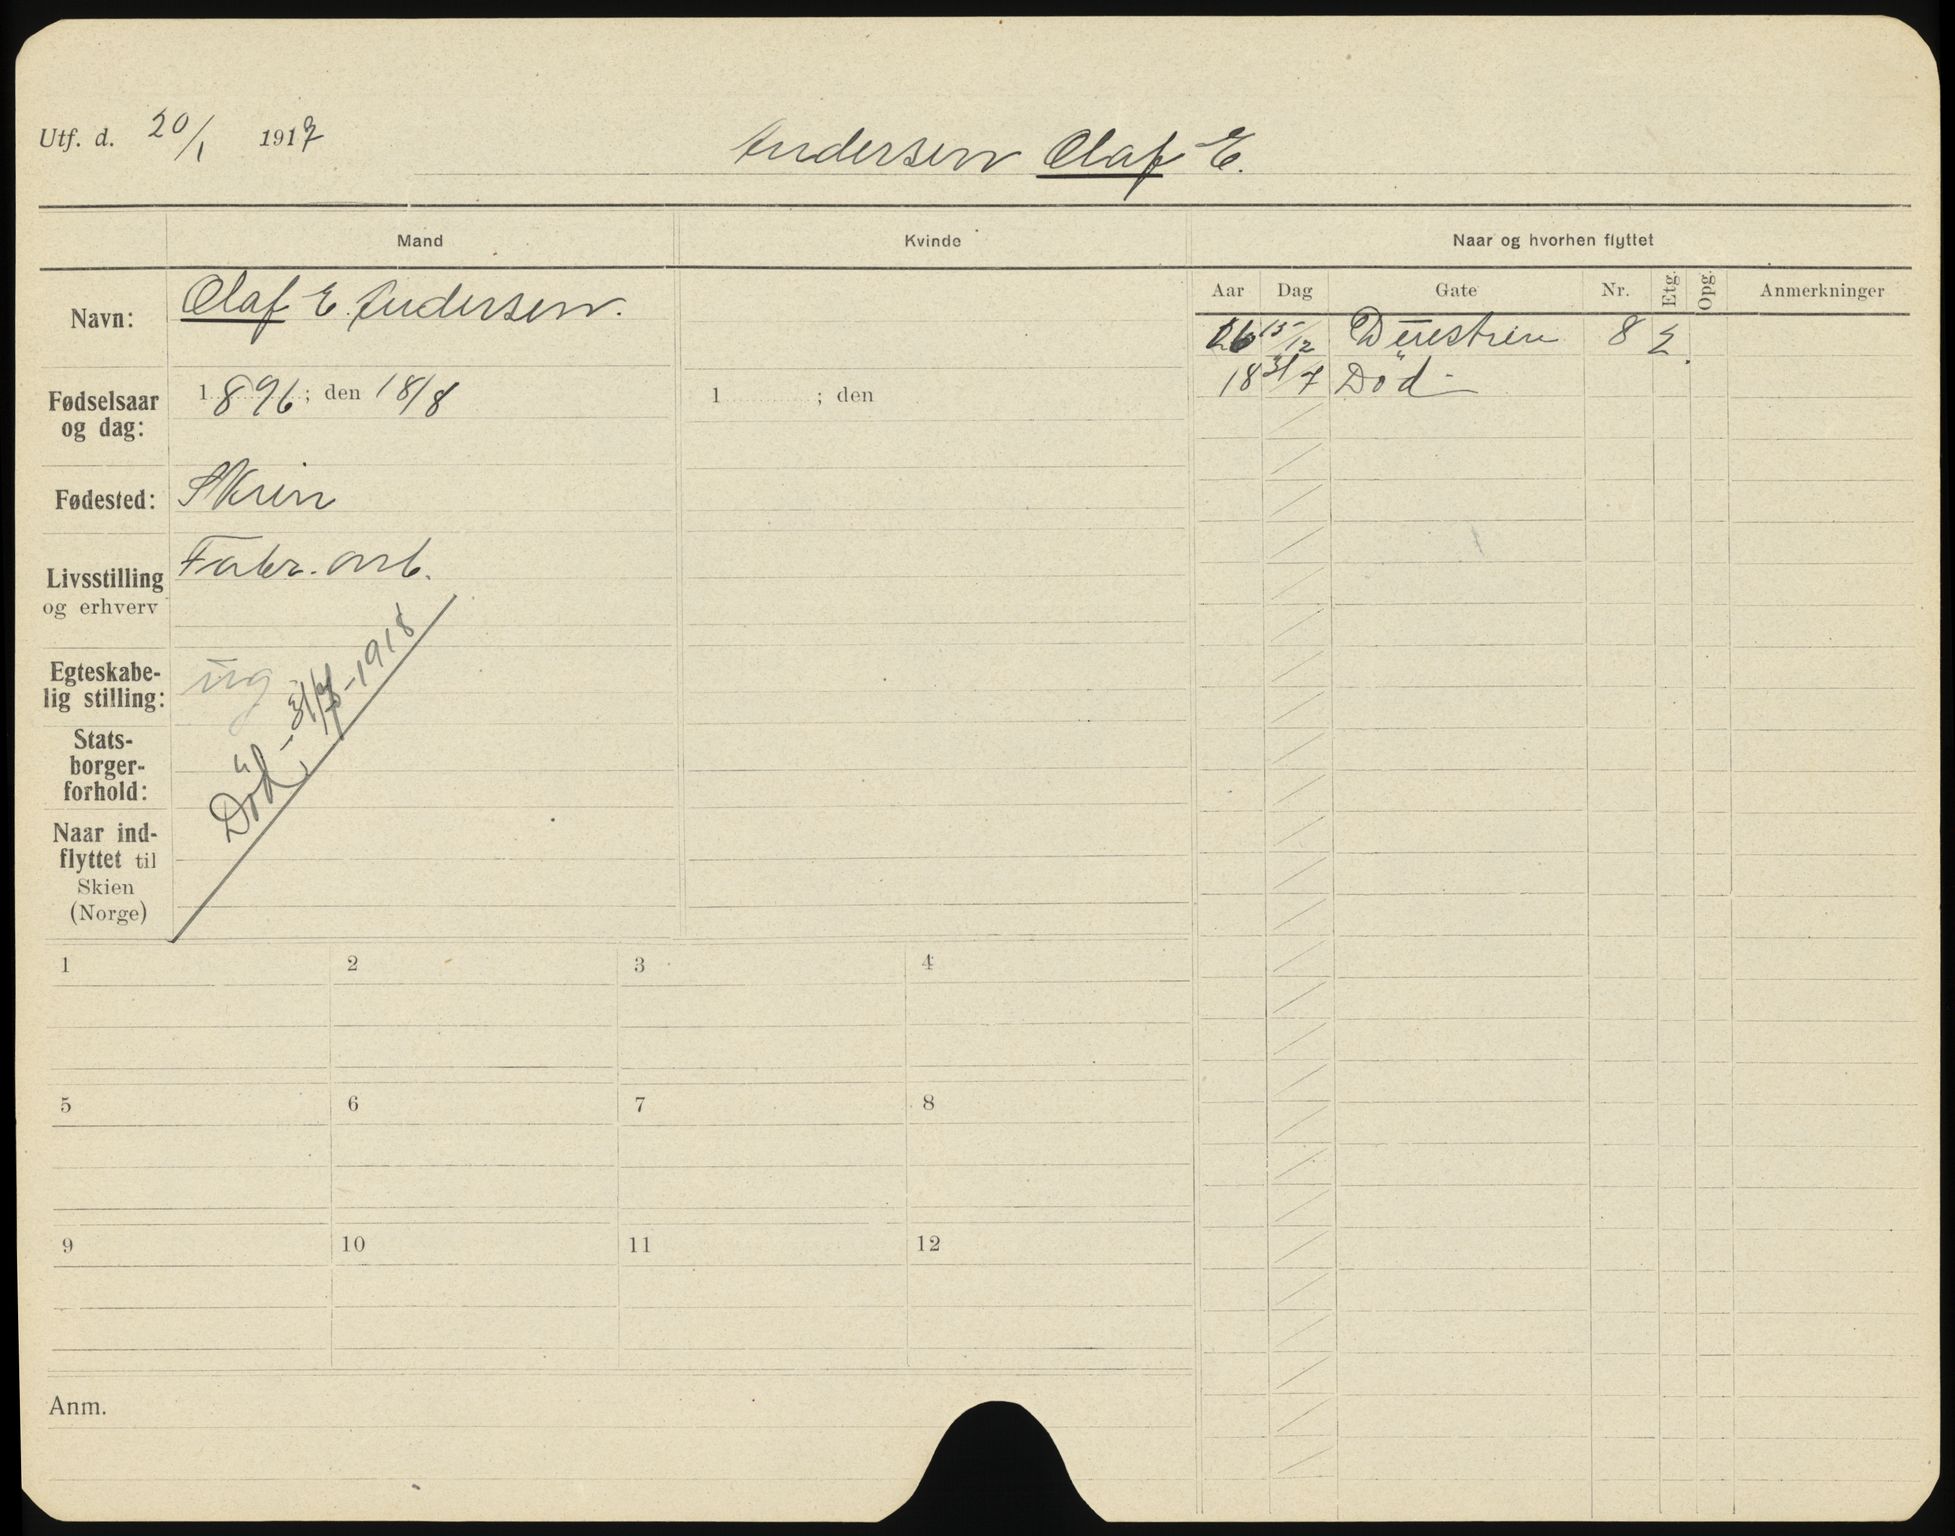 Utf. d. 20/1 1917
Andersen Olaf E.
Mand
Kvinde
Naar og hvorhen flyttet
Navn:
Olaf E. Andersen.
Fødselsaar
og dag:
1896; den 18/8
1 ; den
Fødested:
Livsstilling
og erhverv
Fabr. arb.
Egteskabe-
lig stilling:
ug
Stats-
borger-
forhold:
Naar ind-
flyttet til
Skien
(Norge)
Död - 31/7-1918
Aar Dag Gate Nr. Etg. Opg. Anmerkninger
15/12 8
18 31/7 Död -
1 2 3 4
5 6 7 8
9 10 11 12
Anm.